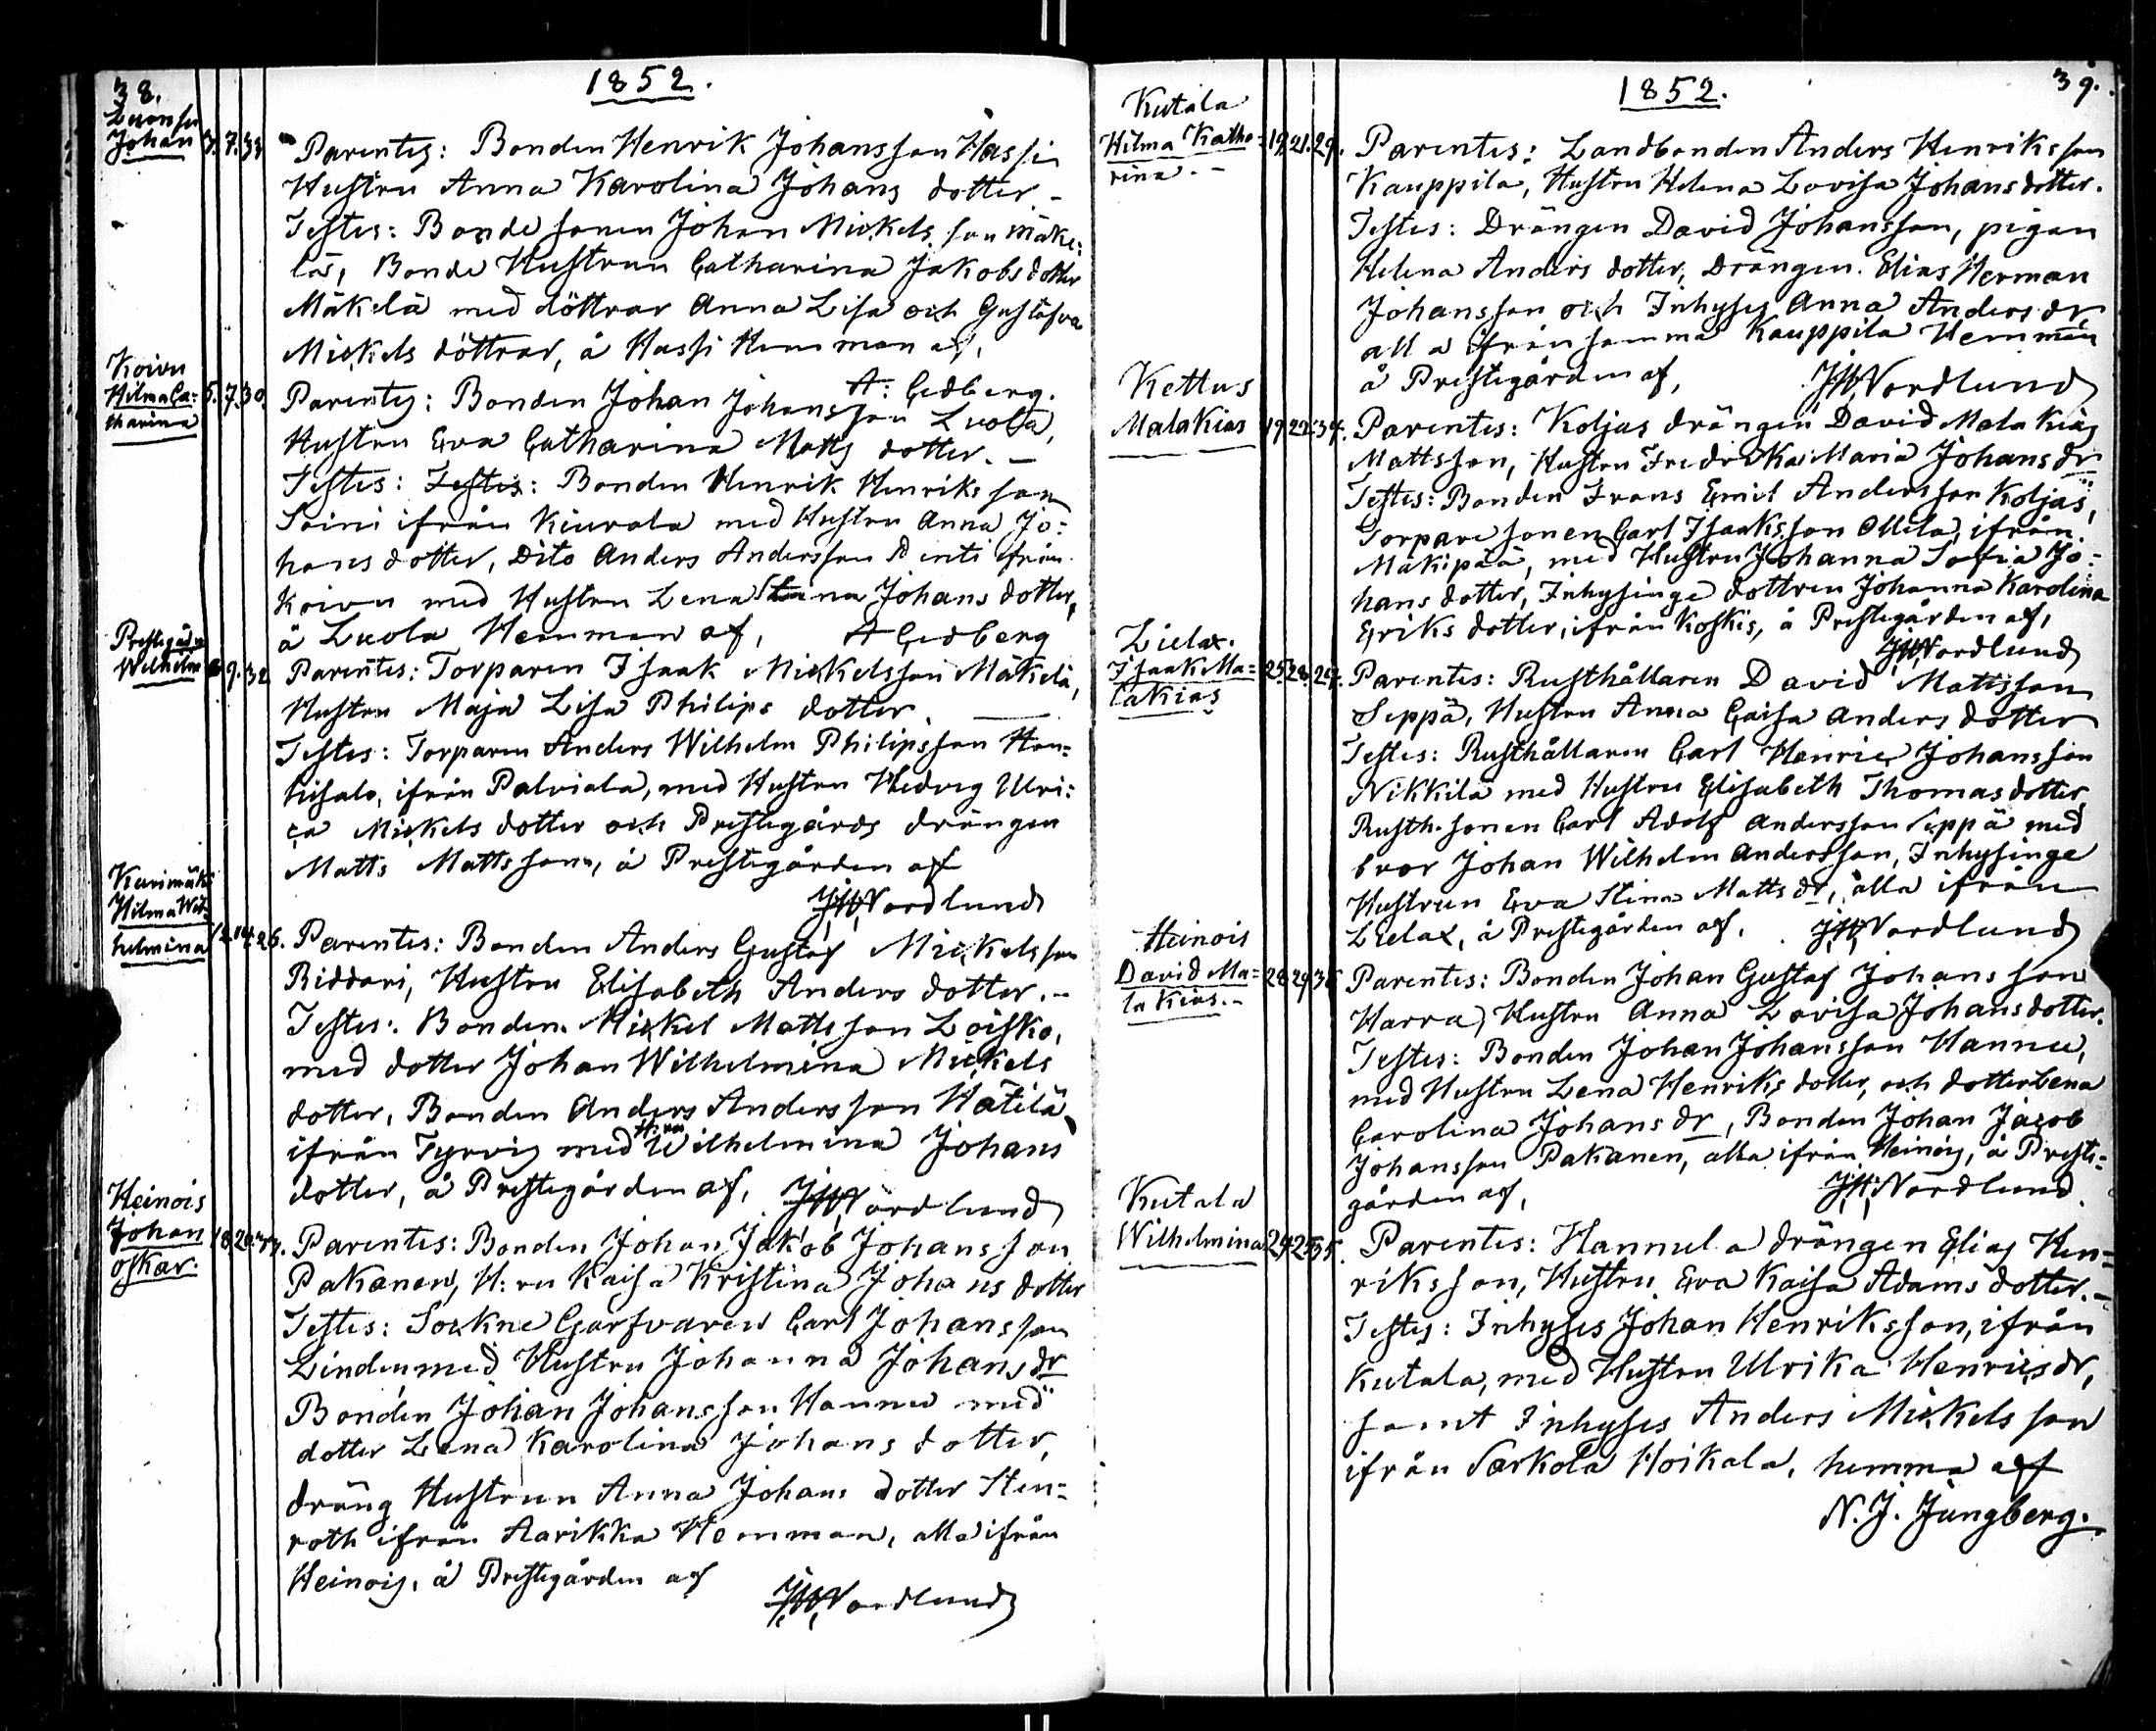 38.
1852.
Johan 3. 7. 33
Parentes: Bonden Henrik Johansson Hassi
Hustru Anna Karolina Johans dotter. –
Testes: Bonde sonen Johan Mickels son Mäke:
läs, Bonde Hustrun Catharina Jakobs dotter
Mäkelä med döttrar Anna Lisa och Gustafva
Mickels döttrar, å Hassi Hemman af,
A: Cedberg.
Koivu
Hilma Ca= 5. 7. 30.
tharina
Parentes: Bonden Johan Johansson Luola,
Hustru Eva Catharina Matts dotter. –
Testes: Testes: Bonden Henrik Henriks son
Soini ifrån Kiurala med Hustru Anna Jo:
hans dotter, Dito Anders Andersson Penti ifrån
Koivu med Hustru Lena Stina Johans dotter,
å Luola Hemman af, A Cedberg
Prestegårn
Wilhelm 9. 32
Parentes: Torparen Isaak Mickelsson Mäkelä,
Hustru Maja Lisa Philips dotter. —
Testes: Torparen Anders Wilhelm Philipsson Hon=
kisalo, ifrån Palviala, med Hustru Hedvig Ulri:
ca Mickels dotter och Prestegårds drängen
Matts Mattsson, å Prestegården af
JW Nordlund
Karimäki
Hilma Wil=
helmina 12. 14. 26.
Parentes: Bonden Anders Gustaf Mickelsson
Riddari, Hustru Elisabeth Anders dotter. –
Testes: Bonden Mickel Mattsson Loisko,
med dotter Johan Wilhelmina Mickels
dotter, Bonden Anders Andersson Hätilä
ifrån Tyrvis med H:ru Wilhelmina Johans
dotter, å Prestegården af, JW Nordlund
Heinois
Johan 18. 20.
Oskar.
Parentes: Bonden Johan Jakob Johansson
Pakanen, H:ru Kaisa Kristina Johans dotter
Testes: Sockne Garfvaren Carl Johansson
Linden med Hustru Johanna Johans dr
Bonden Johan Johansson Hannu med
dotter Lena Karolina Johans dotter,
dräng Hustrun Anna Johans dotter Sten=
roth ifrån Aarikka Hemman, alla ifrån
Heinois, å Prestegården af
JW Nordlund
1852.
39.
Kutala
Hilma Katha= 19. 21. 29.
rina. –
Parentes: Landbonden Anders Henriksson
Kauppila, Hustru Helena Lovisa Johansdotter.
Testes: Drängen David Johansson, pigan
Helena Anders dotter, Drängen Elias Herman
Johansson och Inhyses Anna Anders dr
alla ifrån samma Kauppila Hemman
å Prestegården af, JW Nordlund
Kettus
Malakias 19. 22. 34.
Parentes: Koljas drängen David Malakias
Mattsson, Hustru Fredrika Maria Johans dr
Testes: Bonden Frans Emil Andersson Koljas,
Torpare sonen Carl Isaksson Ollila, ifrån
Mäkipää, med Hustru Johanna Sofia Jo=
hans dotter, Inhysinge dottren Johanna Karolina
Eriks dotter, ifrån Koskis, å Prestegården af,
JW Nordlund
Lielax.
Isaak Ma= 25. 28. 27.
lakias
Parentes: Rusthållaren David Mattsson
Seppä, Hustru Anna Caisa Anders dotter
Testes: Rusthållaren Carl Henric Johansson
Nikkilä med Hustru Elisabeth Thomas dotter,
Rusth. sonen Carl Adolf Andersson Seppä med
bror Johan Wilhelm Andersson, Inhysinge
Hustrun Eva Stina Matts dr, alla ifrån
Lielax, å Prestegården af. JW Nordlund
Heinois
David Ma= 28. 29.
lakias. –
Parentes: Bonden Johan Gustaf Johansson
Harra, Hustru Anna Lovisa Johansdotter.
Testes: Bonden Johan Johansson Hannu,
med Hustru Lena Henriks dotter, och dotter Lena
Carolina Johans dr, Bonden Johan Jacob
Johansson Pakanen, alla ifrån Heinois, å Preste=
gården af, JW Nordlund.
Kutala
Wilhelmina 24. 25. 35.
Parentes: Hannula drängen Elias Hen=
riksson, Hustru Eva Kaisa Adams dotter. –
Testes: Inhyses Johan Henriksson, ifrån
Kutala, med Hustru Ulrika Henrics dr,
samt Inhyses Anders Mickelsson
ifrån Sarkola Hoikala, hemma af
N. J. Jungberg.